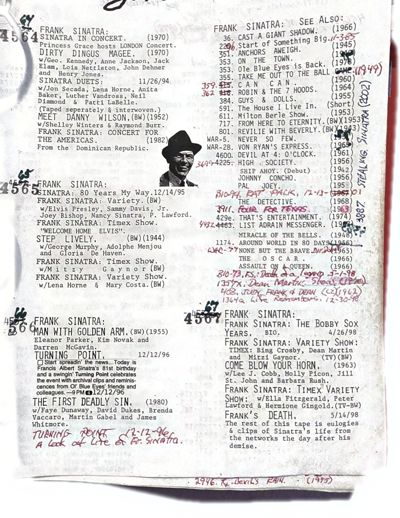 64
4564
FRANK SINATRA:
SINATRA IN CONCERT. (1970)
Princess Grace hosts LONDON Concert.
DIRTY DINGUS MAGEE. (1970)
w/Geo. Kennedy, Anne Jackson, Jack
Elam, Lois Nettleton, John Dehner
and Henry Jones.
SINATRA DUETS: 11/26/94
w/Jon Secada, Lena Horne, Anita
Baker, Luther Vandross, Neil
Diamond & Patti LaBelle.
(Taped seperately & interwoven.)
MEET DANNY WILSON.(BW) (1952)
w/Shelley Winters & Raymond Burr.
FRANK SINATRA: CONCERT FOR
THE AMERICAS. (1982)
From the Dominican Republic.
65
4565
FRANK SINATRA:
SINATRA: 80 Years My Way.12/14/95
FRANK SINATRA: Variety.(BW)
w/Elvis Presley, Sammy Davis, Jr.
Joey Bishop, Nancy Sinatra, P. Lawford.
FRANK SINATRA: Timex Show.
"WELCOME HOME ELVIS".
STEP LIVELY. (BW)(1944)
w/George Murphy, Adolphe Menjou
and Gloria De Haven.
FRANK SINATRA: Timex Show.
w/Mitzy Gaynor (BW)
FRANK SINATRA: Variety Show
w/Lena Horne & Mary Costa.(BW)
66
FRANK SINATRA:
MAN WITH GOLDEN ARM.(BW)(1955)
Eleanor Parker, Kim Novak and
Darren McGavin.
TURNING POINT. 12/12/96
Start spreadin' the news...Today is
Francis Albert Sinatra's 81st birthday
and a swingin' Turning Point celebrates
the event with archival clips and reminis-
cences from Ol' Blue Eyes' friends and
colleagues. —9 PM 12/12/96
THE FIRST DEADLY SIN. (1980)
w/Faye Dunaway, David Dukes, Brenda
Vaccaro, Martin Gabel and James
Whitmore.
TURNING POINT 12-12-96
A look at life of Fr. Sinatra.
FRANK SINATRA: SEE ALSO:
36. CAST A GIANT SHADOW. (1966)
Start of Something Big. 11-3-65
351. ANCHORS AWEIGH. 1945
353. ON THE TOWN.
353. Ol Blue Eyes is Back.
355. TAKE ME OUT TO THE BALL GAME (1949)
CAN CAN 1960
362. ROBIN & THE 7 HOODS. 1964
384. GUYS & DOLLS. 1955
591. The House I Live In. (Short)
611. Milton Berle Show. (1953)
717. FROM HERE TO ETERNITY.(BW)(1953)
801. REVILLE WITH BEVERLY. (BW)
WAR-5. NEVER SO FEW.
WAR-28. VON RYAN'S EXPRESS. (1965)
4600. DEVIL AT 4: O'CLOCK. (1961)
4225. HIGH SOCIETY. (1956)
SHIP AHOY. (Debut)
JOHNNY CONCHO.
PAL JOEY.
THE DETECTIVE. (1968)
3911. FOUR FOR TEXAS. 1963
429e. THAT'S ENTERTAINMENT. (1974)
LIST ADRAIN MESSENGER.
MIRACLE OF THE BELLS.
1174. AROUND WORLD IN 80 DAYS
NONE BUT THE BRAVE.
THE OSCAR. (1966)
ASSAULT ON A QUEEN. (1966)
STEALING SINATRA (2002)
67
4567
FRANK SINATRA:
FRANK SINATRA: The BOBBY SOX
YEARS. BIO. 4/26/98
FRANK SINATRA: VARIETY SHOW:
TIMEX: Bing Crosby, Dean Martin
and Mitzi Gaynor. (TV)(BW)
COME BLOW YOUR HORN. (1963)
w/Lee J. Cobb, Molly Picon, Jill
St. John and Barbara Rush.
FRANK SINATRA: TIMEX VARIETY
SHOW: w/Ella Fitzgerald, Peter
Lawford & Hermione Gingold.(TV-BW)
FRANK'S DEATH. 5/14/98
The rest of this tape is eulogies
& clips of Sinatra's life from
the networks the day after his
demise.
2946. DEVIL'S RAIN. (1975)